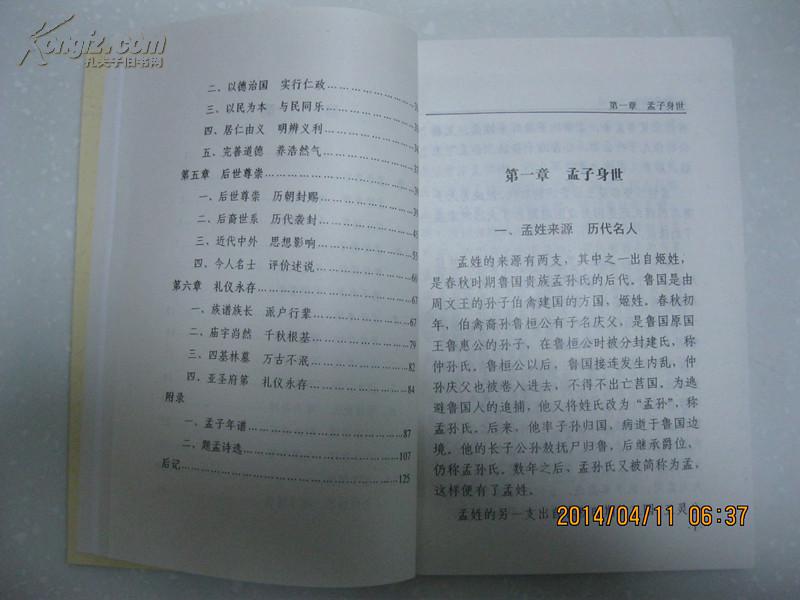 Kongfz.com
孔夫子旧书网
二、以德治国 实行仁政
三、以民为本 与民同乐
四、居仁由义 明辨义利
五、完善道德 养浩然气
第五章 后世尊崇
一、后世尊崇 历朝封赐
二、后裔世系 历代袭封
三、近代中外 思想影响
四、今人名士 评价述说
第六章 礼仪永存
一、族谱族长 派户行辈 67
二、庙宇尚然 千秋根基 79
三、四基林墓 万古不泯 82
四、亚圣府第 礼仪永存 84
附录
一、孟子年谱 87
二、题孟诗选 107
后记 125
第一章 孟子身世
第一章 孟子身世
一、孟姓来源 历代名人
孟姓的来源有两支，其中之一出自姬姓，
是春秋时期鲁国贵族孟孙氏的后代。鲁国是由
周文王的孙子伯禽建国的方国，姬姓。春秋初
年，伯禽裔孙鲁桓公有子名庆父，是鲁国原国
王鲁惠公的孙子，在鲁桓公时被分封建氏，称
仲孙氏。鲁桓公以后，鲁国接连发生内乱，仲
孙庆父也被卷入进去，不得不出亡莒国。为逃
避鲁国人的追捕，他又将姓氏改为“孟孙”，称
孟孙氏。后来，他率子孙归国，病逝于鲁国边
境。他的长子公孙敖抚尸归鲁，后继承爵位，
仍称孟孙氏。数年之后、孟孙氏又被简称为孟，
这样便有了孟姓。
孟姓的另一支出
灵
2014/04/11 06:37